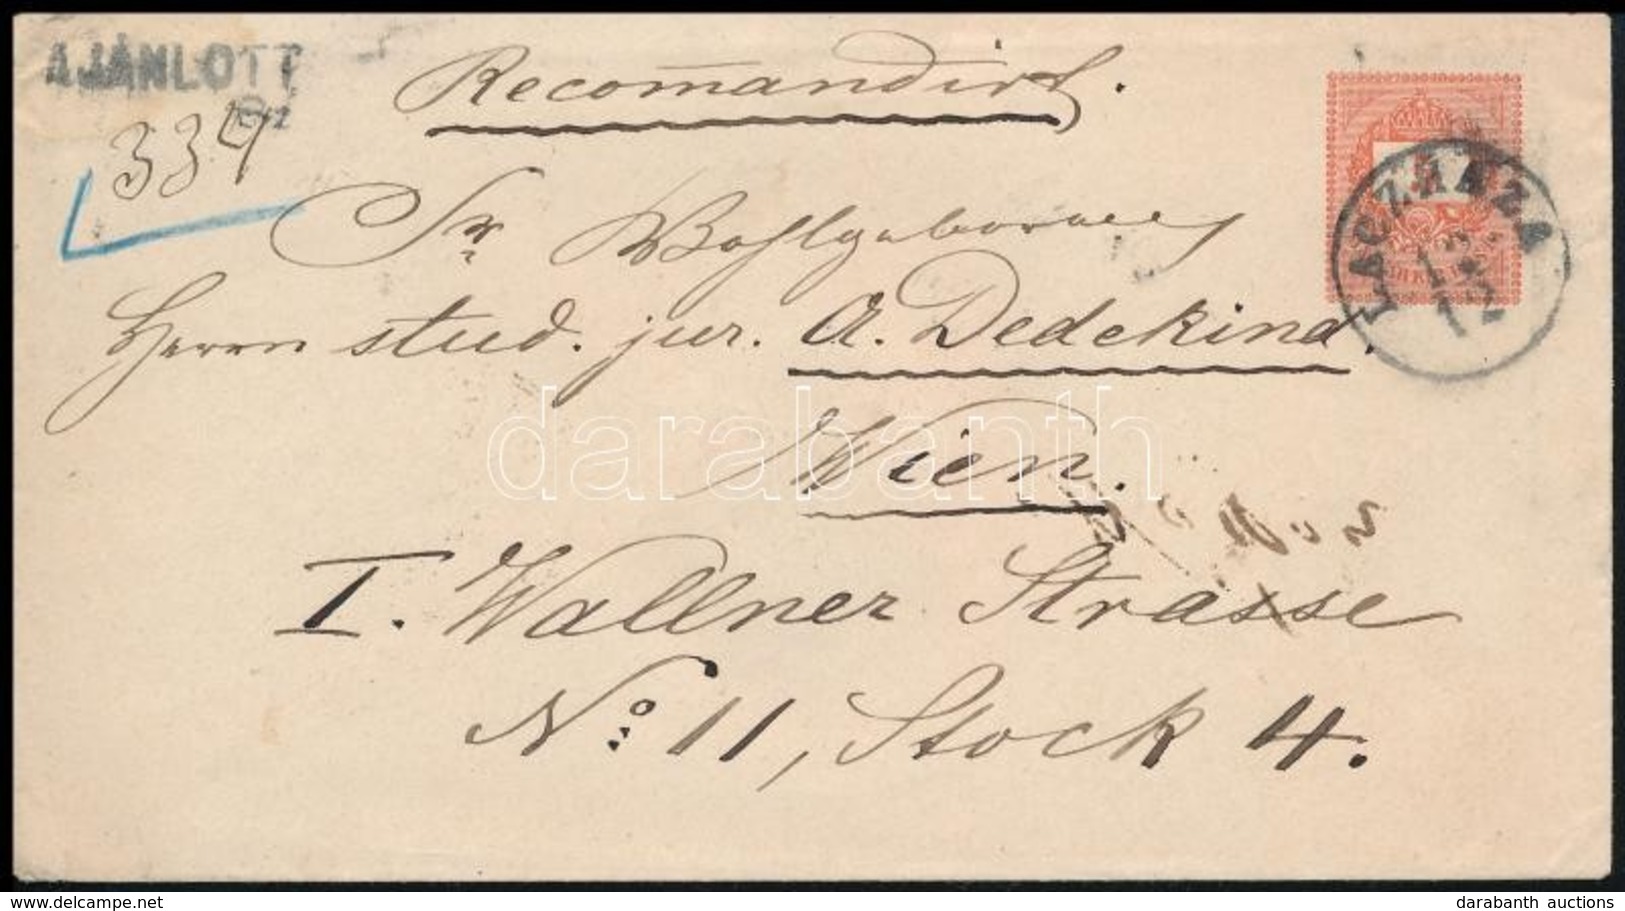 AJÁNLOTT
339
Recomandirt.
Sr Wohlgeboren
Herrn stud. jur. A. Dedekind,
Wien.
I. Wallner Strasse
No 11, Stock 4.
LACZHÁZA
12
12
darabanth
darabanth auctions